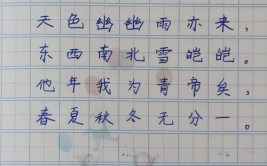 天色幽幽雨亦来，
东西南北雪皑皑。
他年我为青帝矣，
春夏秋冬无分一。